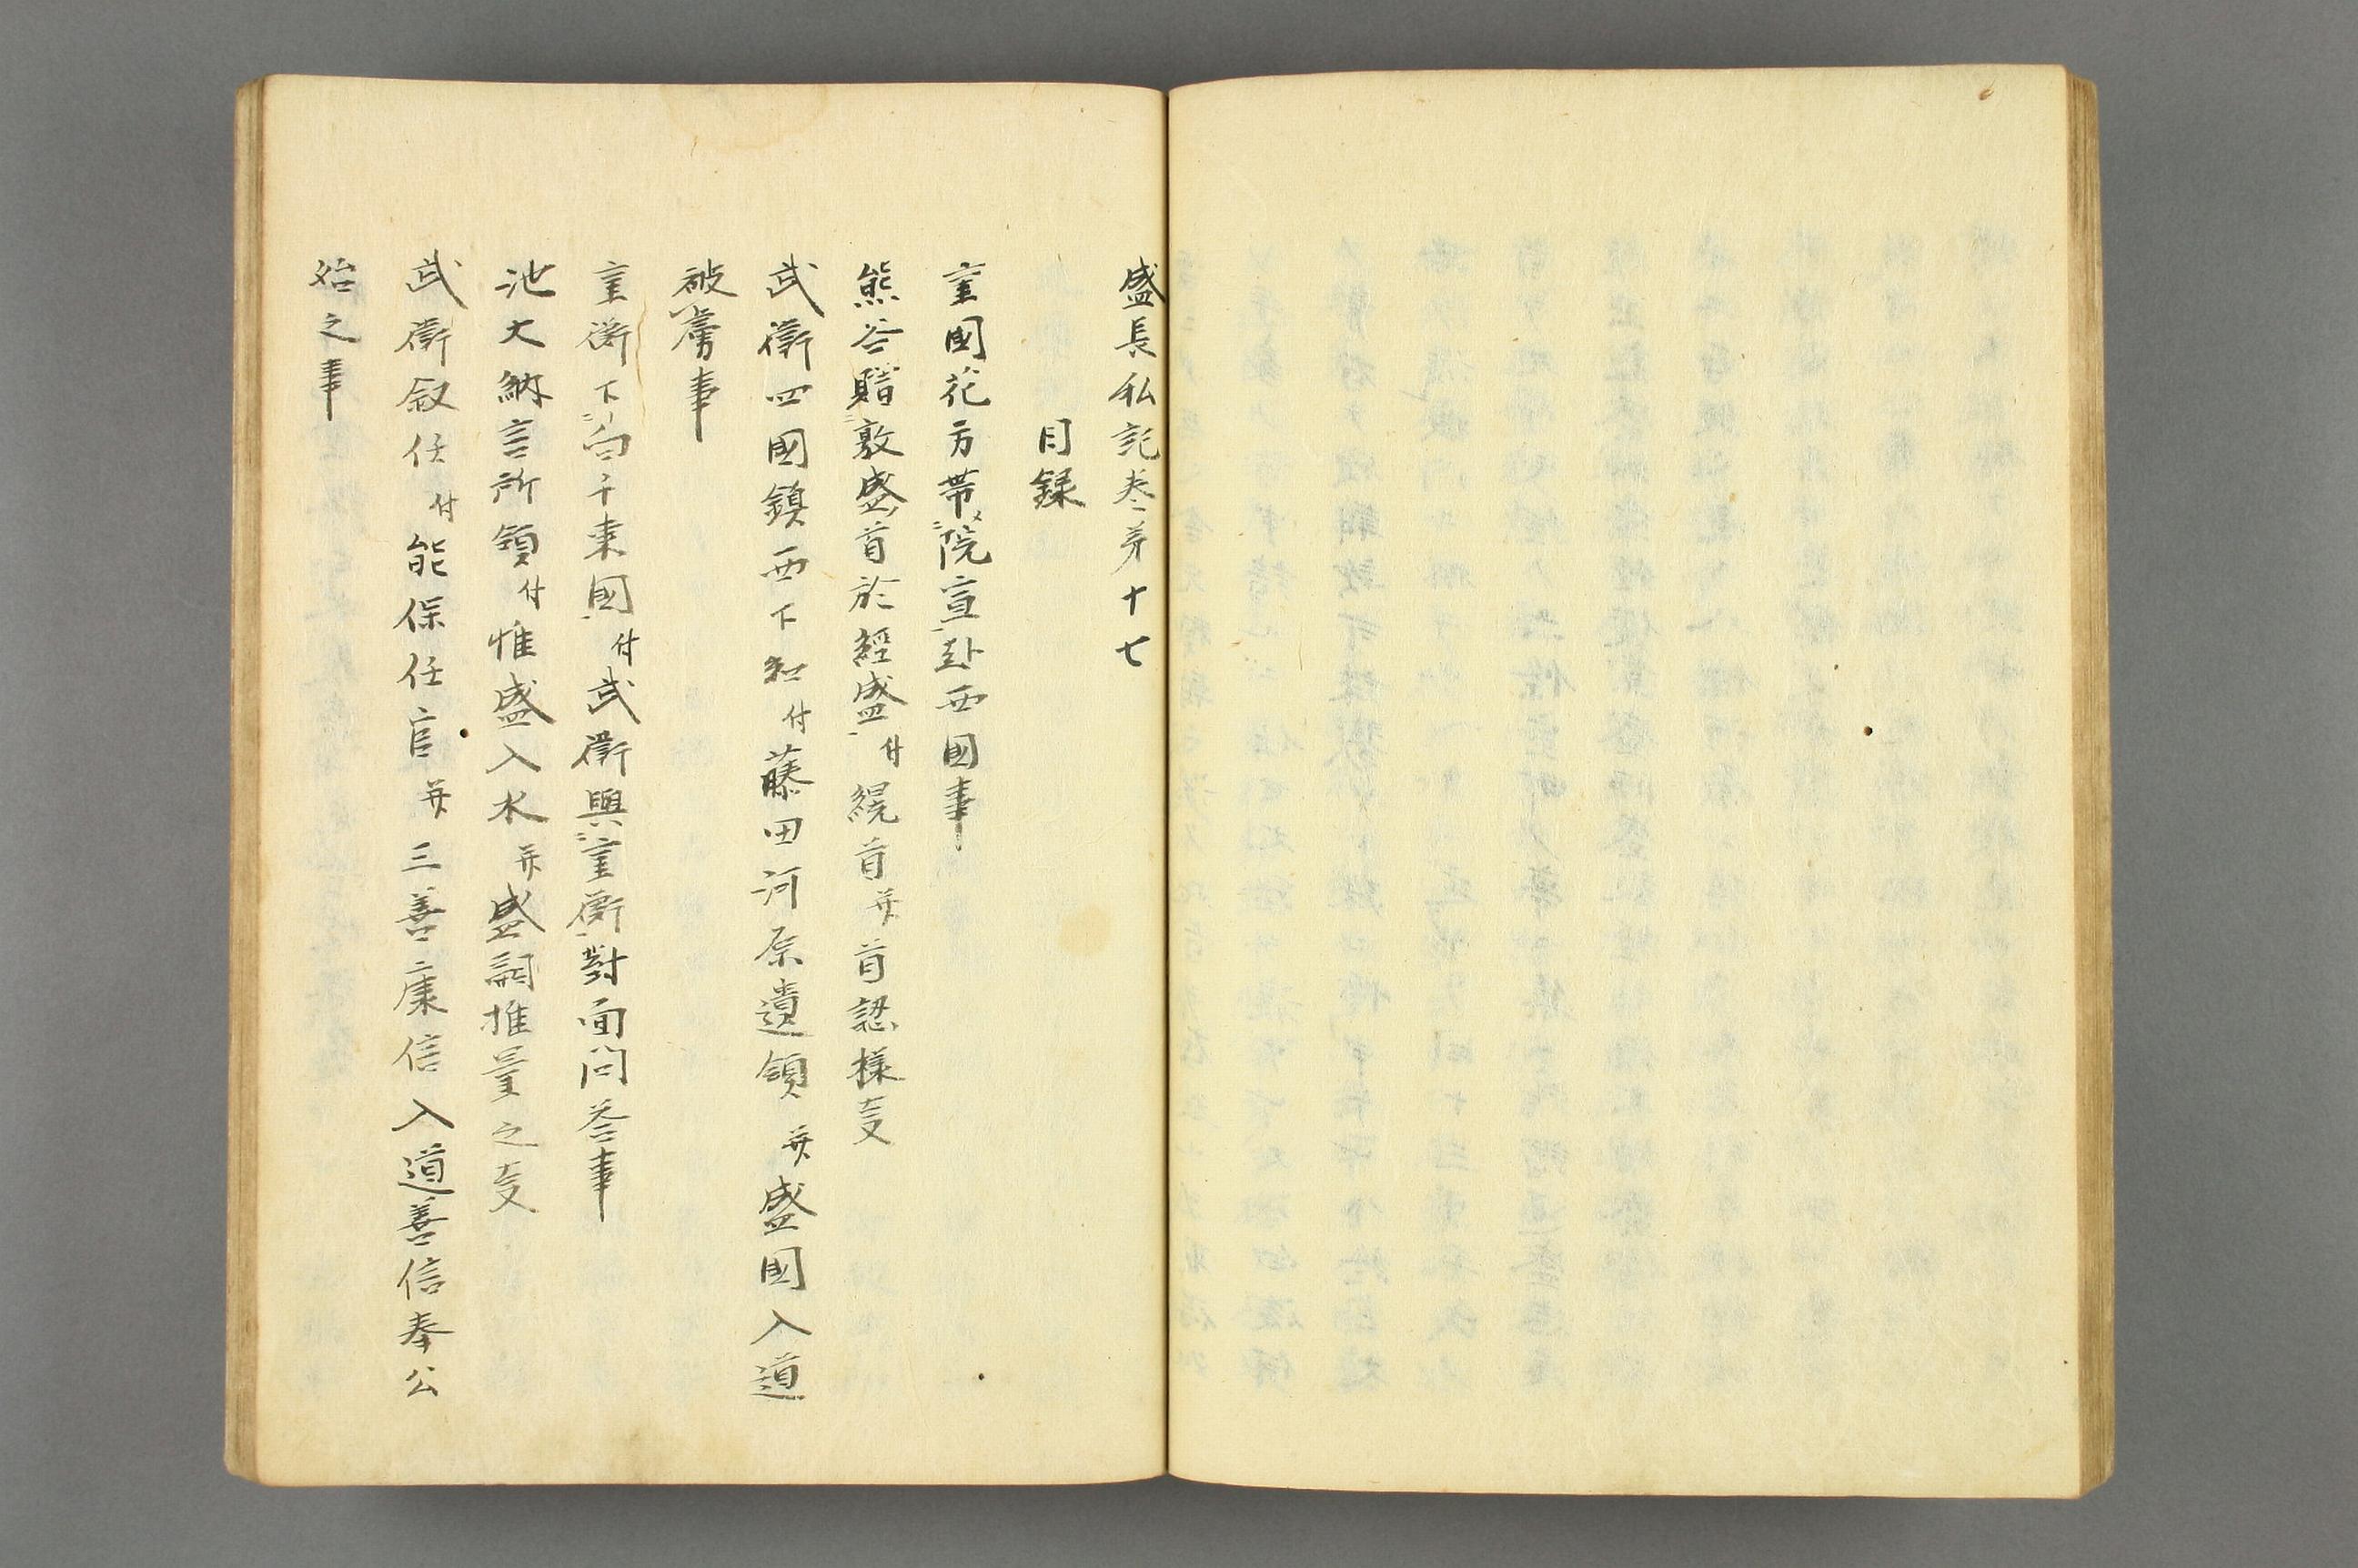 盛長私記巻第十七
目録
重國花方帯院宣赴西國事
熊谷贈敦盛首於經盛付纐首并首認様叓
武衛四國鎮西下知付藤田河原遺領并盛國入道
被虜事
重衡下向于東國付武衛與重衡對面問答事
池大納言所領付惟盛入水并盛嗣推量之叓
武衛叙任付能保任官并三善康信入道善信奉公
始之事